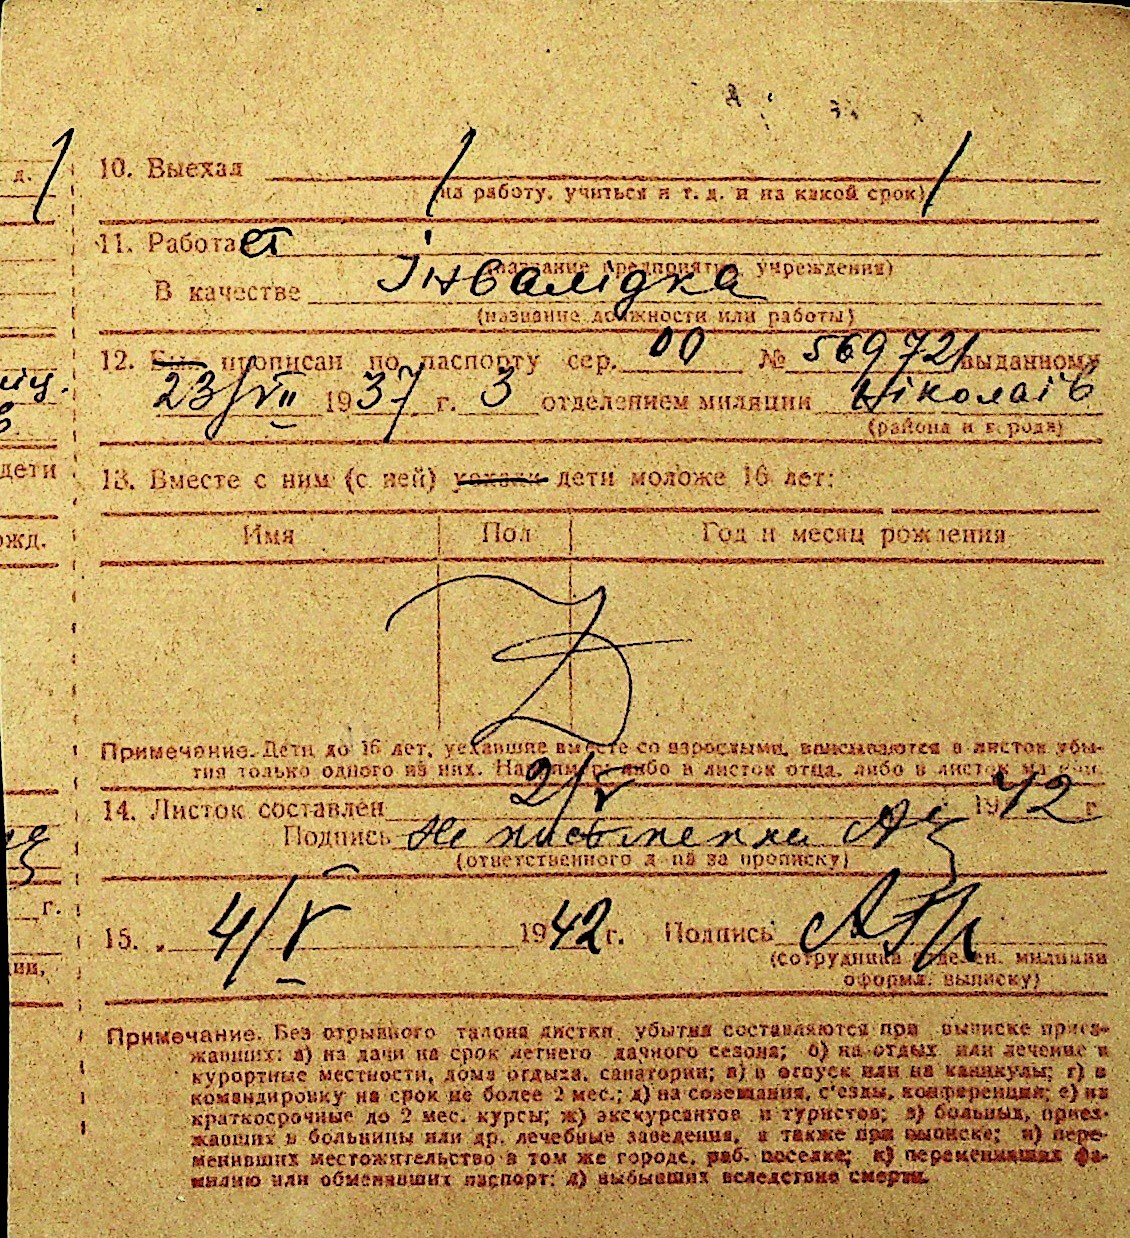 д.
10. Выехал
(на работу, учиться и т. д. и на какой срок)
11. Работает
(название предприятия, учреждения)
В качестве Інвалідка
(название должности или работы)
12. Был прописан по паспорту сер. 00 № 569721 выданному
23/VII 1937 г. 3 отделением милиции Ніколаів
(района и города)
дети
13. Вместе с ним (с ней) уехали дети моложе 16 лет:
ожд.
Имя Пол Год и месяц рождения
Примечание. Дети до 16 лет, уехавшие вместе со взрослыми, вписываются в листок убы-
тия только одного из них. Например: либо в листок отца, либо в листок матери.
14. Листок составлен 2/V 1942 г
Подпись
(ответственного л-ца за прописку)
г.
15. „ 4/V 1942 г. Подпись
(сотрудника отделен. милиции
оформл. выписку)
ции,
Примечание. Без отрывного талона листки убытия составляются при выписке приез-
жавших: а) на дачи на срок летнего дачного сезона; б) на отдых или лечение в
курортные местности, дома отдыха, санатории; в) в отпуск или на каникулы; г) в
командировку на срок не более 2 мес.; д) на совещания, с'езды, конференции; е) на
краткосрочные до 2 мес. курсы; ж) экскурсантов и туристов; з) больных, приез-
жавших в больницы или др. лечебные заведения, а также при выписке; и) пере-
менивших местожительство в том же городе, раб. поселке; к) переменивших фа-
милию или обменявших паспорт; л) выбывших вследствие смерти.